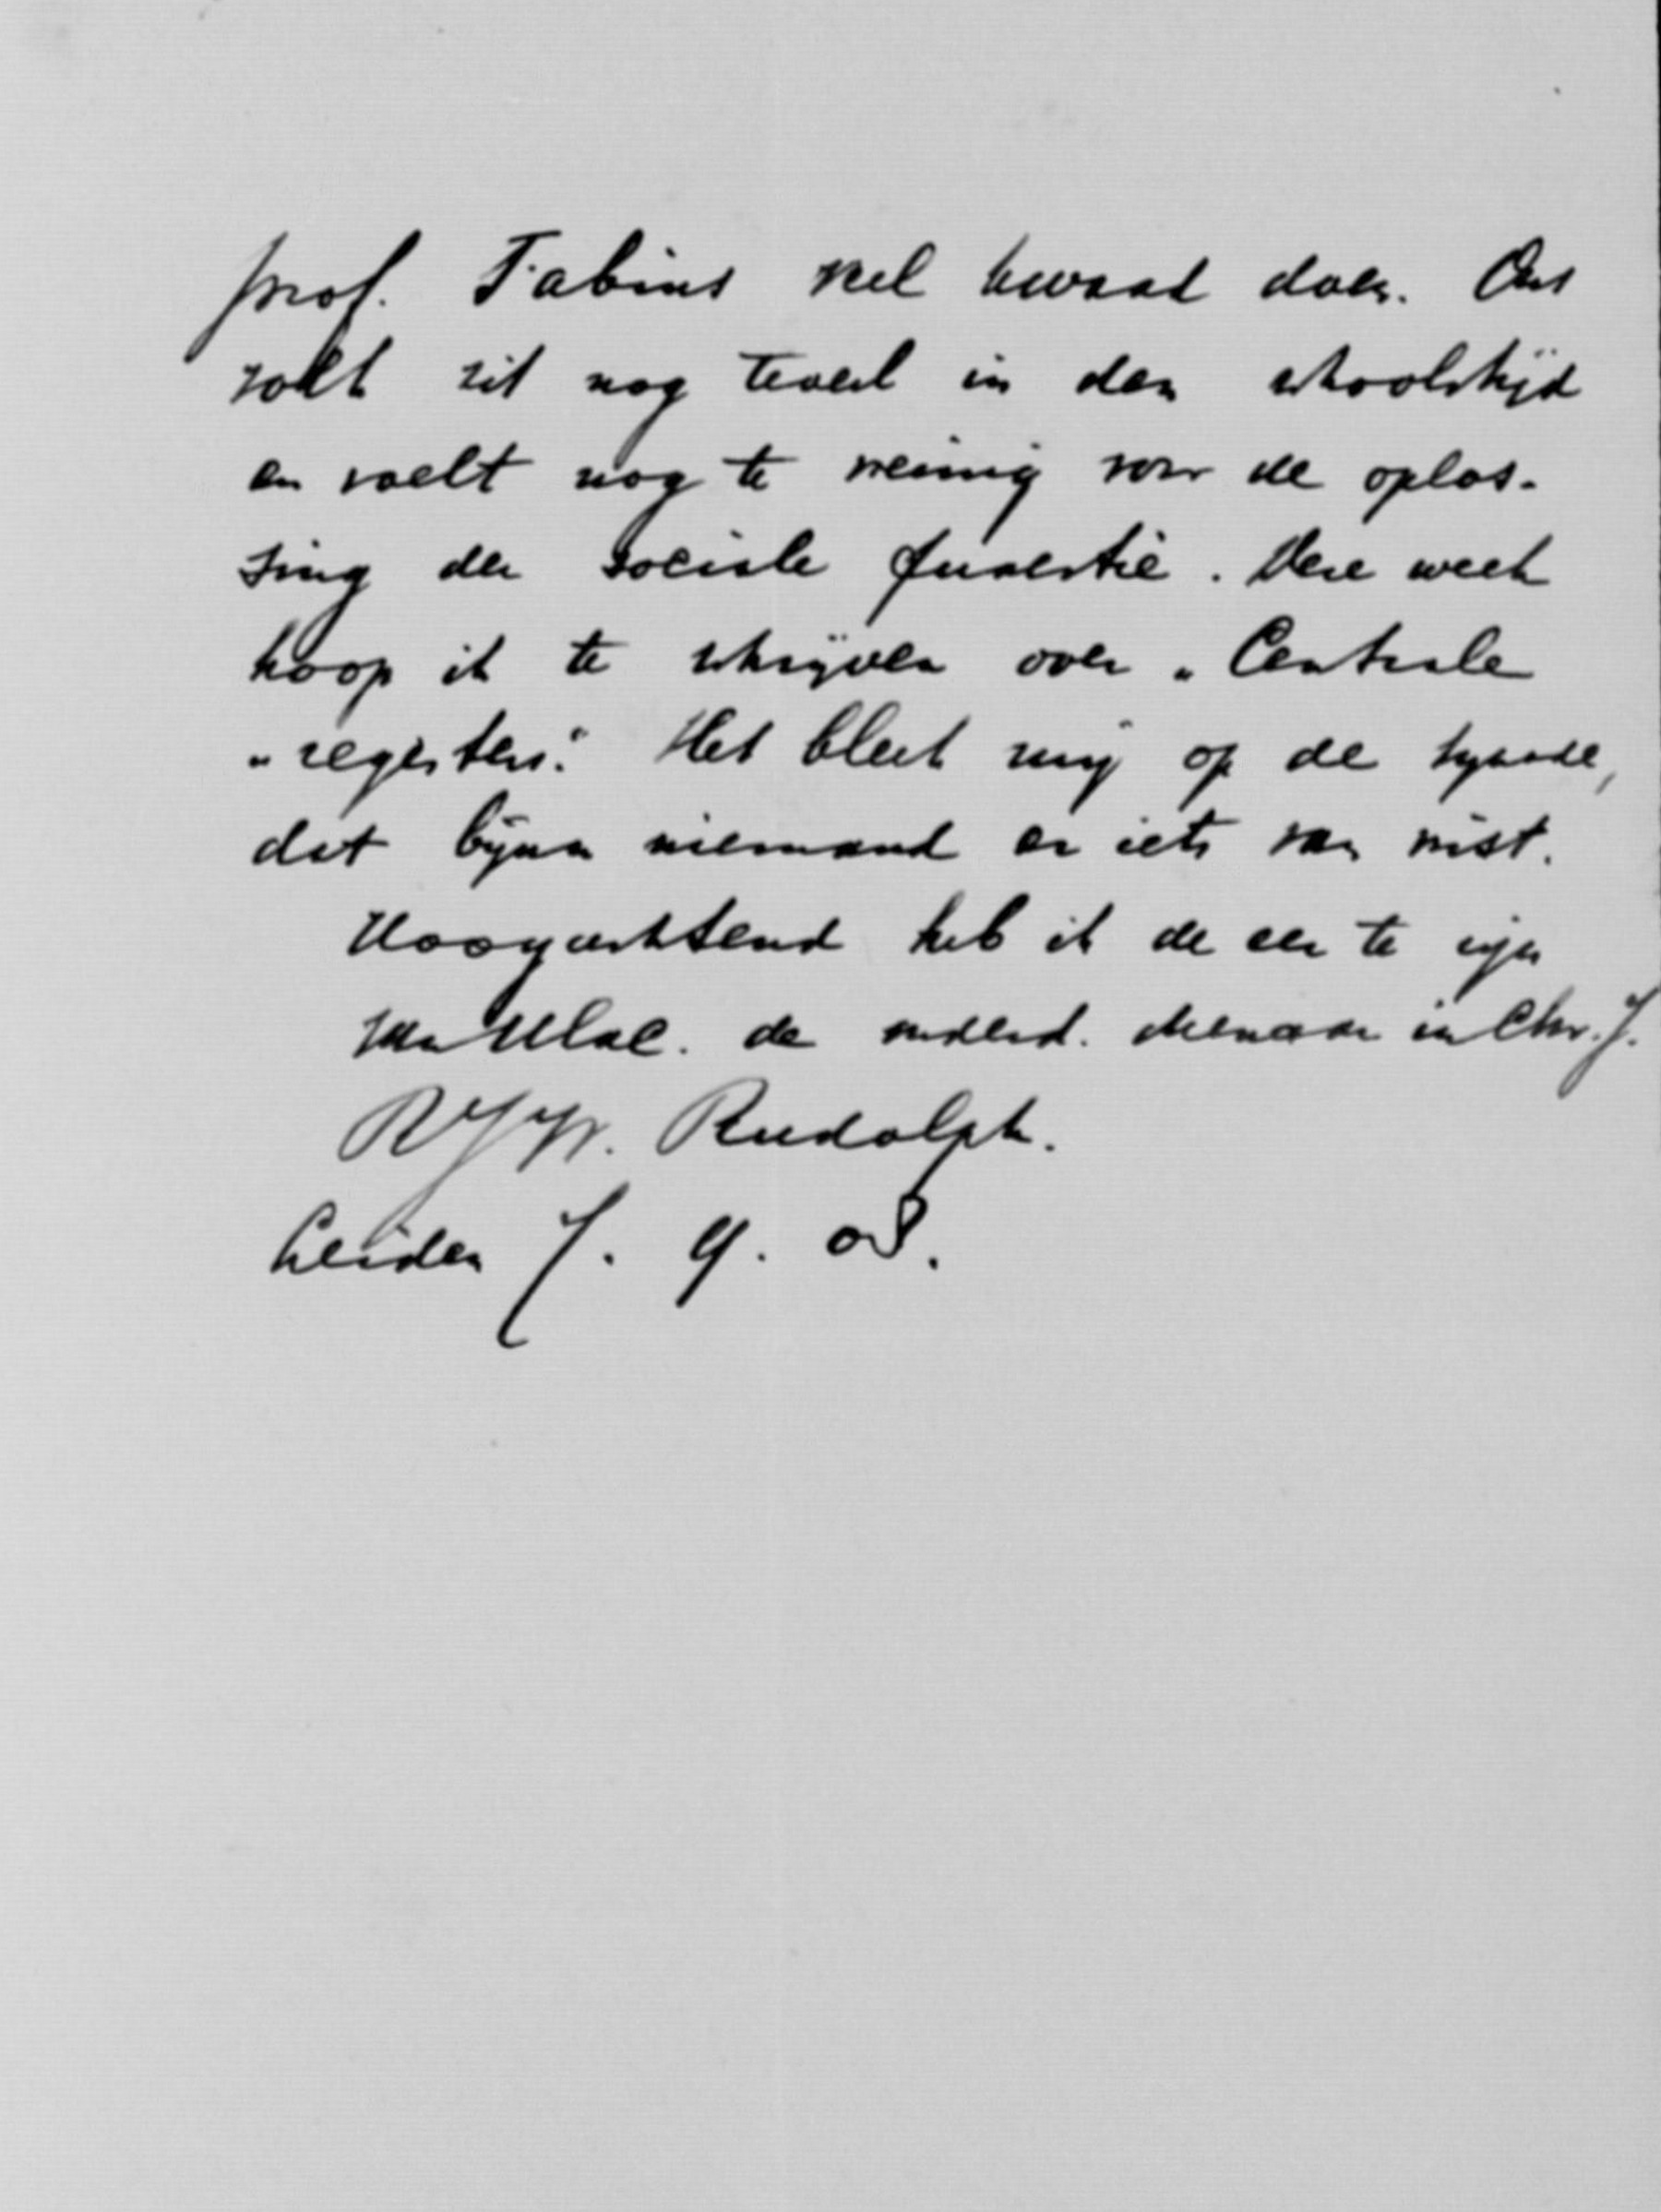 prof. Fabius veel kwaad doen. Ons
volk zit nog teveel in den schoolstrijd
en voelt nog te weinig voor de oplos-
sing der sociale quaestie. Deze week
hoop ik te schrijven over „Centrale
„registers." Het bleek mij op de synode,
dat bijna niemand er iets van wist.
Hoogachtend heb ik de eer te zijn
van UExc. de onderd. dienaar in Chr. J.
Rudolph.
Leiden 7. 9. 08.